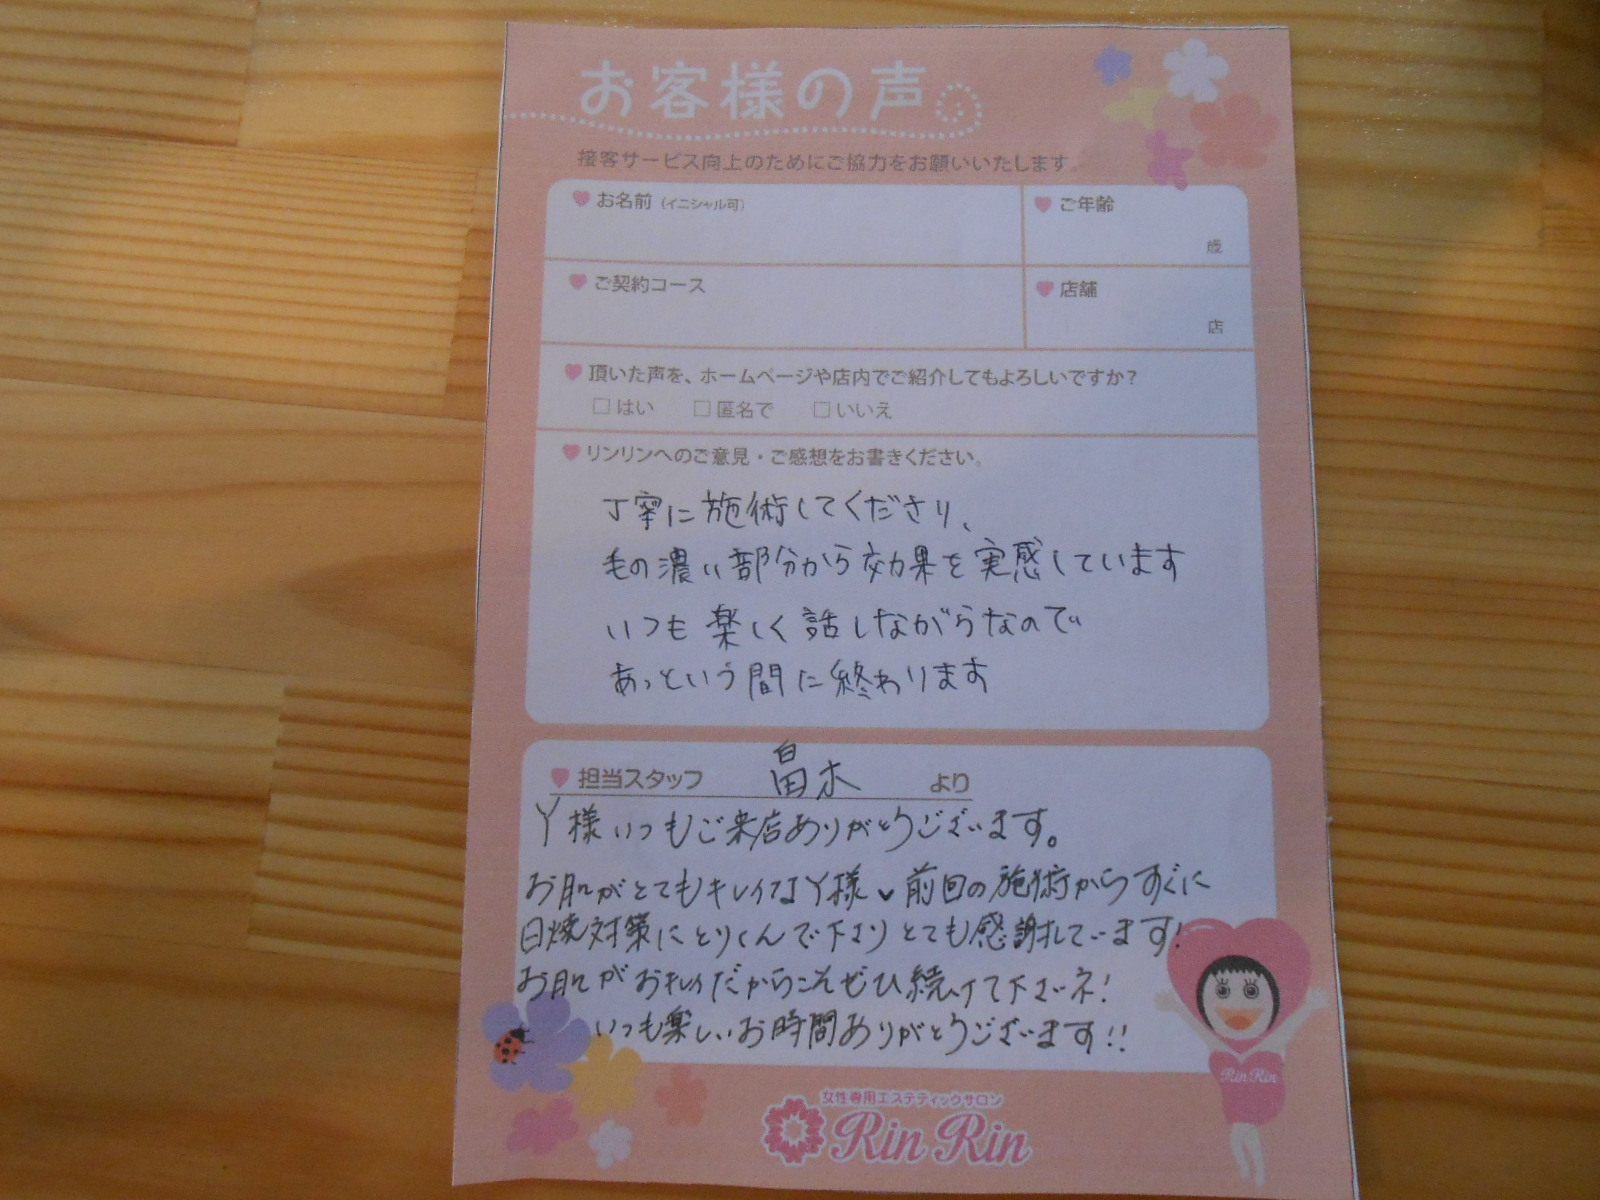 お客様の声
接客サービス向上のためにご協力をお願いいたします。
お名前（イニシャル可）
ご年齢
歳
ご契約コース
店舗
店
頂いた声を、ホームページや店内でご紹介してもよろしいですか？
□はい □匿名で □いいえ
リンリンへのご意見・ご感想をお書きください。
丁寧に施術してくださり、
毛の濃い部分から効果を実感しています
いつも楽しく話しながらなので
あっという間に終わります
担当スタッフ 畠木 より
Y様いつもご来店ありがとうございます。
お肌がとてもキレイなY様♥前回の施術からすぐに
日焼対策にとりくんで下さりとても感謝しています!
お肌がおキレイだからこそぜひ続けて下さいネ!
いつも楽しいお時間ありがとうございます!!
Rin Rin
女性専用エステティックサロン
Rin Rin